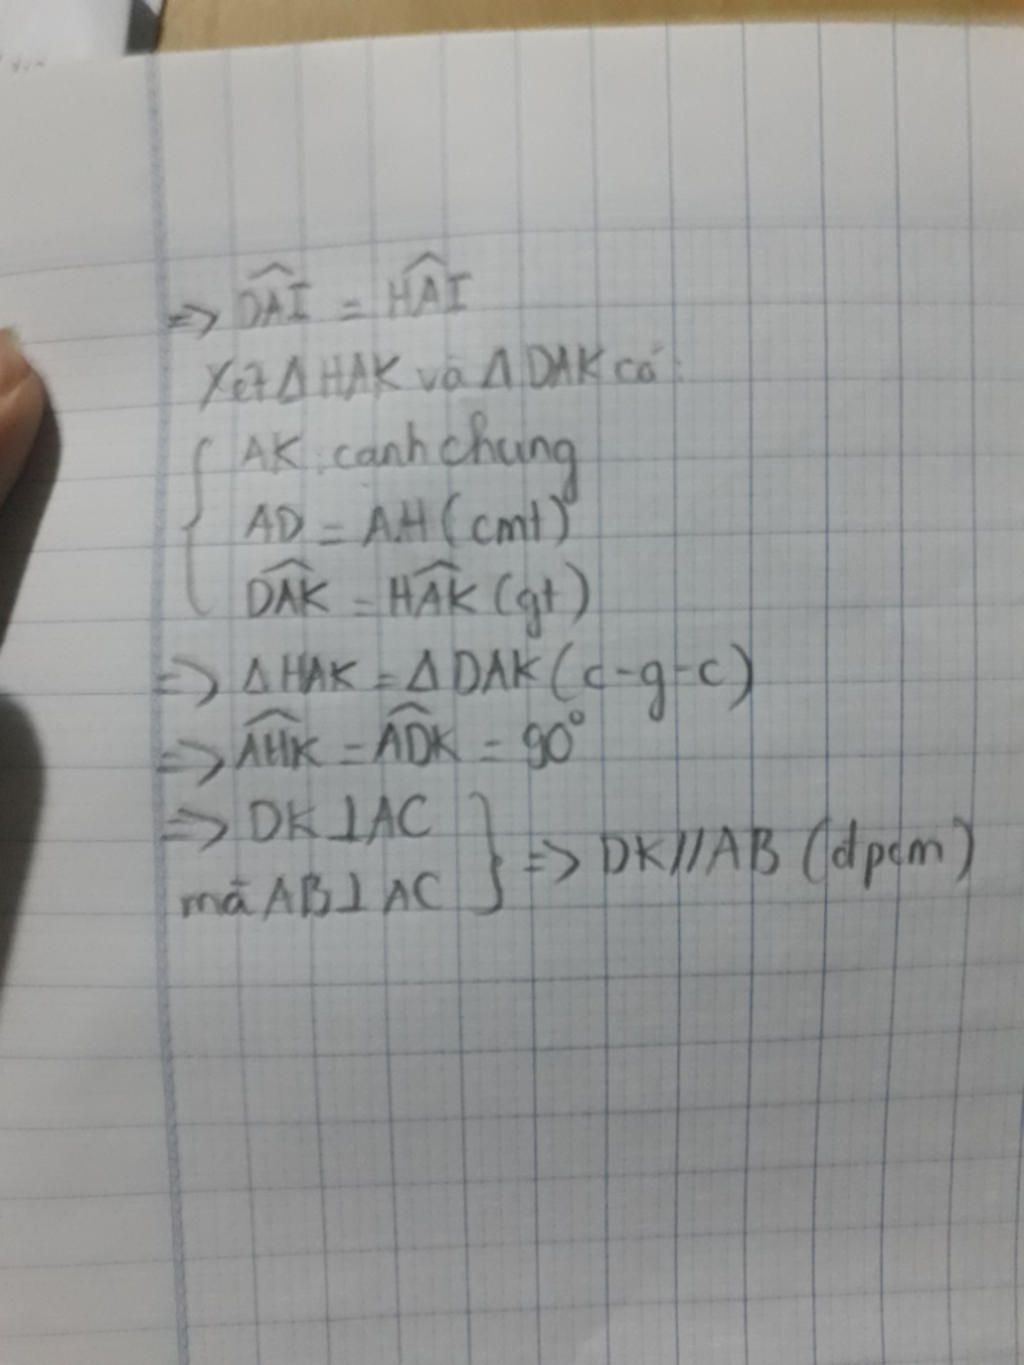 => \widehat{DAI} = \widehat{HAI}
Xét Δ HAK và Δ DAK có:
{ AK: cạnh chung
AD = AH (cmt)
\widehat{DAK} = \widehat{HAK} (gt)
=> Δ HAK = Δ DAK (c-g-c)
=> \widehat{AHK} = \widehat{ADK} = 90°
=> DK ⊥ AC
mà AB ⊥ AC } => DK // AB (đpcm)